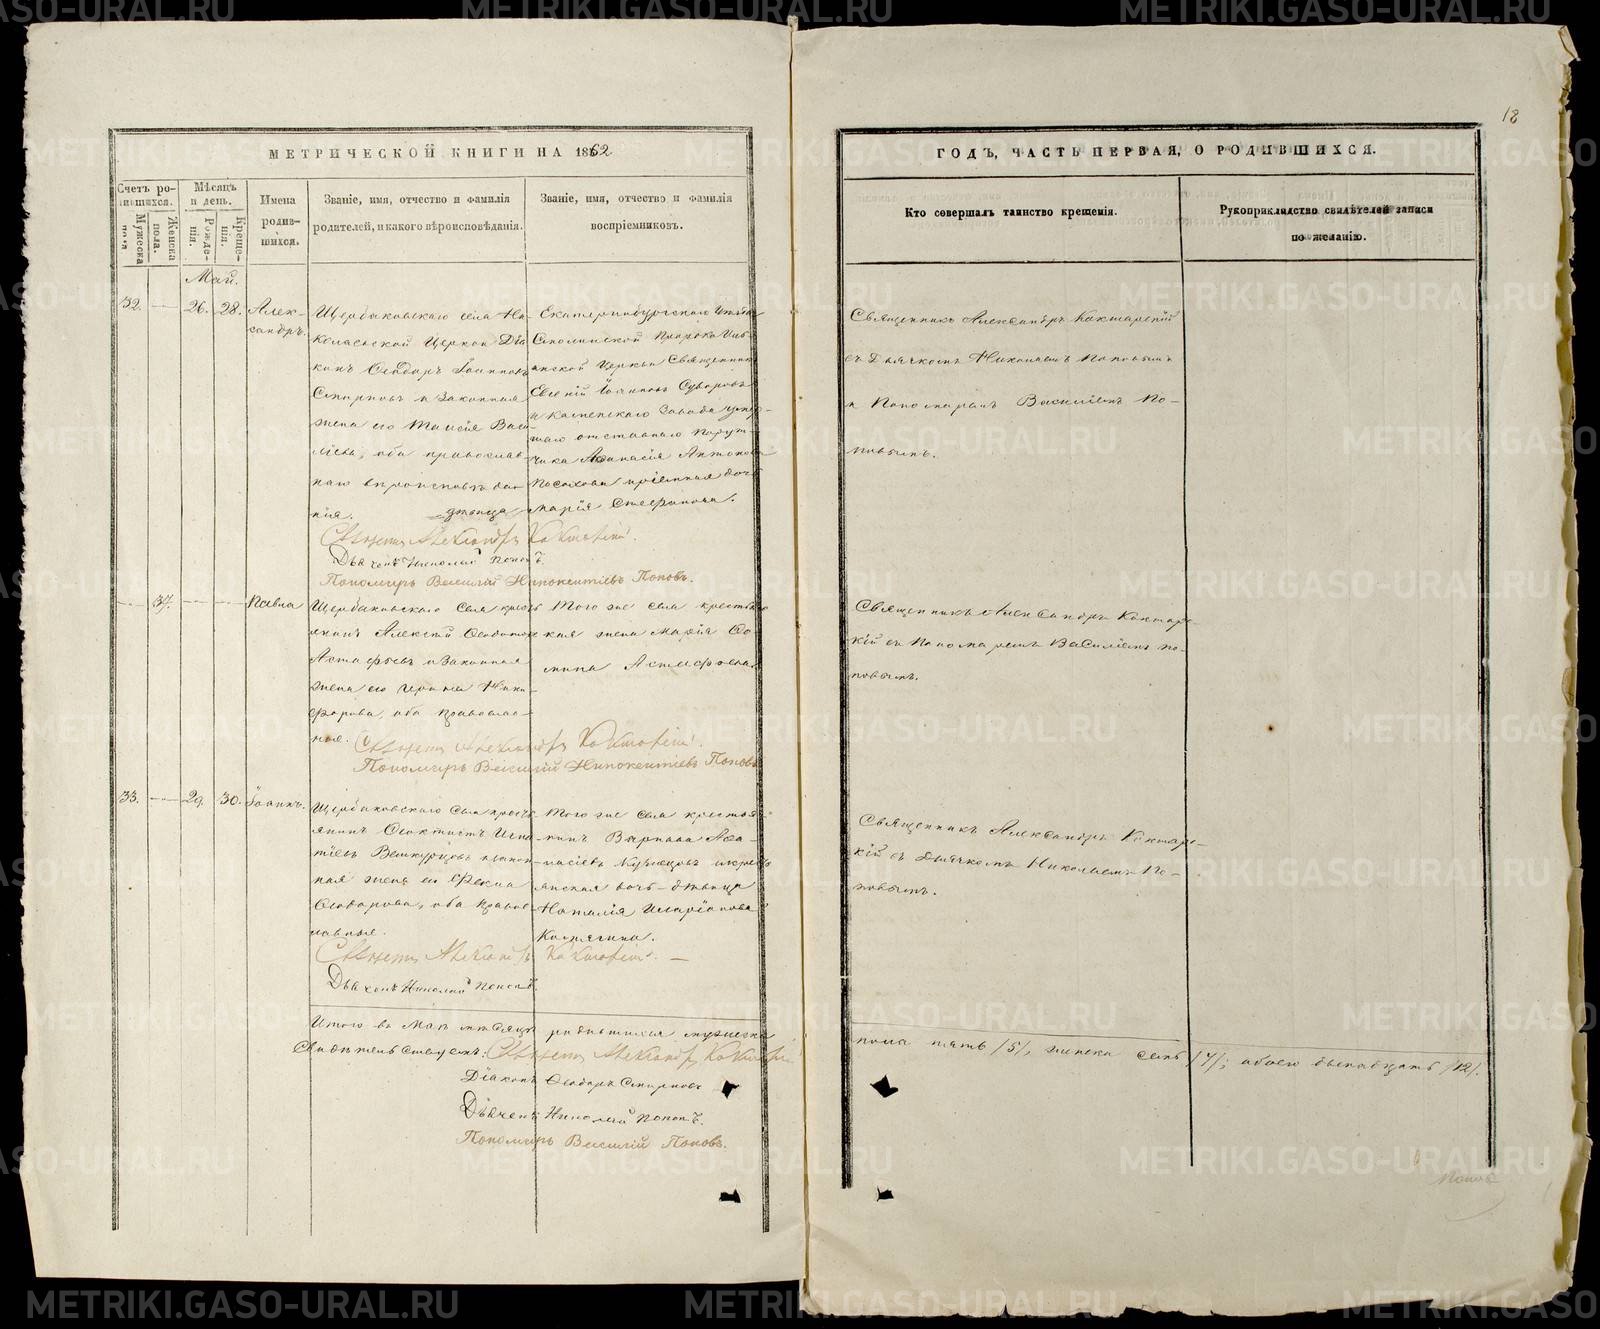 18
МЕТРИЧЕСКОЙ КНИГИ НА 1862
ГОДЪ, ЧАСТЬ ПЕРВАЯ, О РОДИВШИХСЯ.
Счетъ родившихся.
Мужеска пола.
Женска пола.
Мѣсяцъ и день.
Рожденія.
Крещенія.
Имена родившихся.
Званіе, имя, отчество и фамилія
родителей, и какого вѣроисповѣданія.
Званіе, имя, отчество и фамилія
воспріемниковъ.
Кто совершалъ таинство крещенія.
Рукоприкладство свидѣтелей записи
по желанію.
Май.
32. 26. 28. Александръ.
Щербаковскаго села Ни-
колаевской Церкви Діа
конъ Ѳеодоръ Іоанновъ
Смирновъ и законная
жена его Таисія Васи-
лiева, оба православ-
наго вѣроисповѣда-
нія.
Екатеринбургскаго
Пророко Иль-
инской Церкви Священникъ
Евгеній Іоанновъ Суворовъ
и Каменскаго завода умер-
шаго отставнаго Поруч-
чика Аѳанасія Антонова
пріемная дочь
дѣвица Марія Стефанова.
Священникъ Александръ Кокшарскій
Дьячекъ Николай Поповъ.
Пономарь Василій Иннокентіевъ Поповъ.
Священникъ Александръ Кокшарскій
съ Дьячкомъ Николаемъ Поповымъ
и Пономаремъ Василіемъ По-
повымъ.
37. Павла
Щербаковскаго села крестьянинъ Алексѣй
Астафьевъ и законная
жена его Ники-
форова, оба православ-
ные.
Того же села крестьян-
ская жена Марія Ѳо-
мина Астафьева
Священникъ Александръ Кокшарскій.
Пономарь Василій Иннокентіевъ Поповъ
Священникъ Александръ Кокшарс-
кій съ Пономаремъ Василіемъ По-
повымъ.
33. 29. 30. Іоаннъ.
Щербаковскаго села кресть
янинъ Ѳеоктистъ Игна
тіевъ и закон-
ная жена его Ѳекла
Ѳеодорова, оба право-
славные.
Того же села крестья-
нинъ Варнава Аѳа-
насіевъ Кузнецовъ и кресть
янская дочь - дѣвица
Наталія Иларіонова
Священникъ Александръ Кокшарскій.
Дьячекъ Николай Поповъ.
Священникъ Александръ Кокшарс-
кій съ Дьячкомъ Николаемъ По-
повымъ.
Итого въ Маѣ мѣсяцѣ родившихся мужеска
пола пять /5/, женска семь /7/; обоего двенадцать /12/.
Свидѣтельствуемъ: Священникъ Александръ Кокшарскій
Діаконъ Ѳеодоръ Смирновъ
Дьячекъ Николай Поповъ.
Пономарь Василій Поповъ.
METRIKI.GASO-URAL.RU